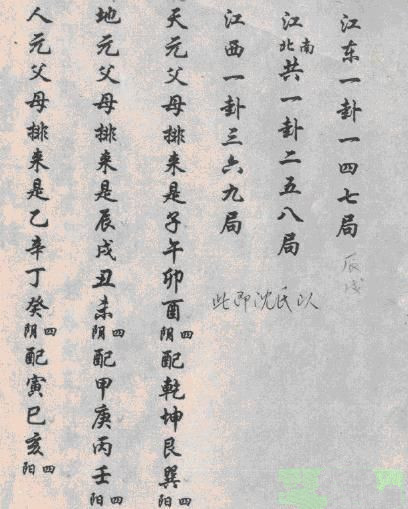 江东一卦一四七局
辰戌
江南北共一卦二五八局
江西一卦三六九局
此即沈氏以
天元父母排来是子午卯酉四阴配乾坤艮巽四阳
地元父母排来是辰戌丑未四阴配甲庚丙壬四阳
人元父母排来是乙辛丁癸四阴配寅巳亥四阳